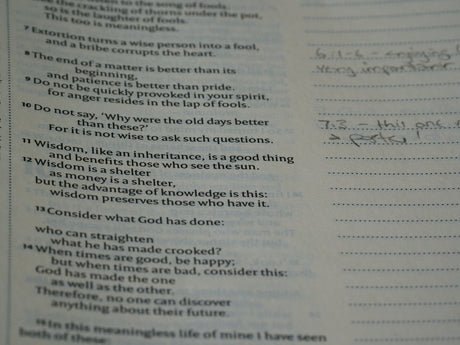 to the song of fools.
the crackling of thorns under the pot,
so is the laughter of fools.
This too is meaningless.
7 Extortion turns a wise person into a fool,
and a bribe corrupts the heart.
8 The end of a matter is better than its
beginning,
and patience is better than pride.
9 Do not be quickly provoked in your spirit,
for anger resides in the lap of fools.
10 Do not say, ‘Why were the old days better
than these?’
For it is not wise to ask such questions.
11 Wisdom, like an inheritance, is a good thing
and benefits those who see the sun.
12 Wisdom is a shelter
as money is a shelter,
but the advantage of knowledge is this:
wisdom preserves those who have it.
13 Consider what God has done:
who can straighten
what he has made crooked?
14 When times are good, be happy;
but when times are bad, consider this:
God has made the one
as well as the other.
Therefore, no one can discover
anything about their future.
15 In this meaningless life of mine I have seen
both of these:
6:1-6 - enjoying
very important
7:3 - this one
a party!